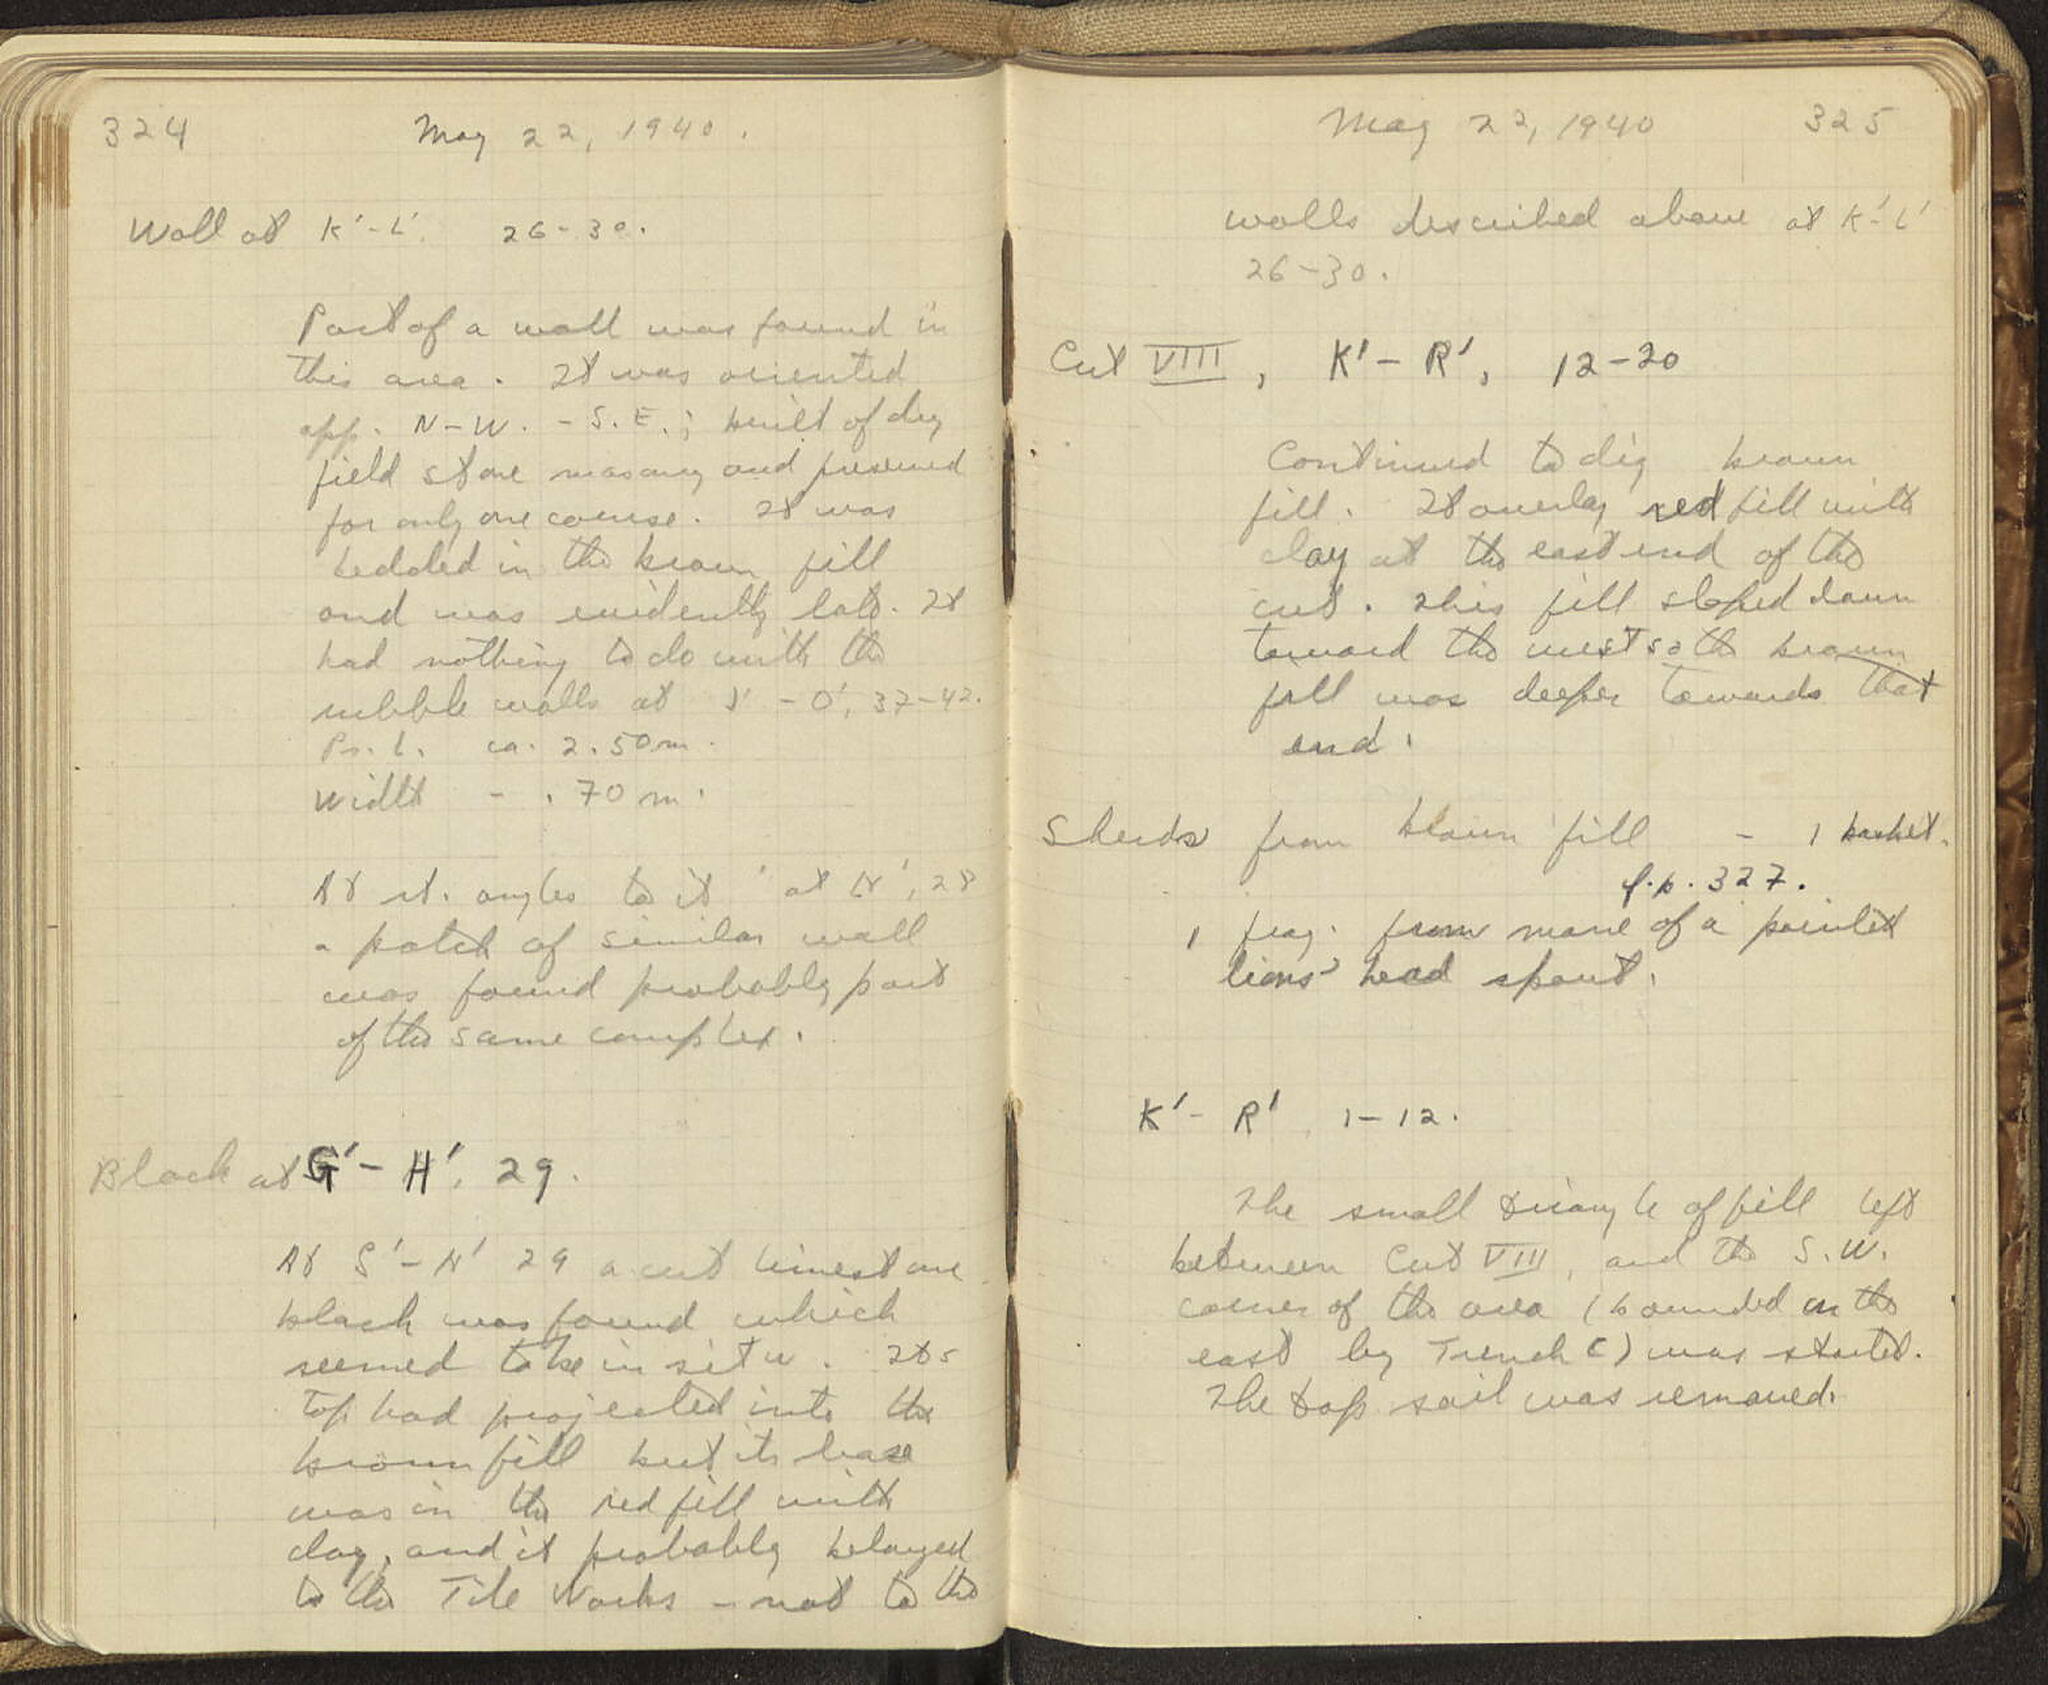 324
May 22, 1940.
Wall at K'-L'. 26-30.
Part of a wall was found in
this area. It was oriented
app. N-W. - S.E.; built of dry
field stone masonry and preserved
for only one course. It was
bedded in the brown fill
and was evidently late. It
had nothing to do with the
rubble walls at - O', 37-42.
Pr. L. ca. 2.50 m.
Width - .70 m.
At rt. angles to it at 28
a patch of similar wall
was found probably part
of the same complex.
Block at G'-H', 29.
At G'-H' 29 a cut limestone
block was found which
seemed to be in situ. Its
top had projected into the
brown fill but its base
was in the red fill with
clay, and it probably belonged
to the Tile Works - not to the
May 22, 1940
325
walls described above at K'-L'
26-30.
Cut VIII, K'-R', 12-20
Continued to dig brown
fill. It overlay red fill with
clay at the east end of the
cut. This fill sloped down
toward the west so the brown
fill was deeper towards that
end.
Sherds from brown fill - 1 basket.
f.p. 327.
1 frag. from mane of a painted
lions' head spout.
K'-R' 1-12.
The small triangle of fill left
between Cut VIII, and the S.W.
corner of the area (bounded on the
east by Trench C) was started.
The top soil was removed.